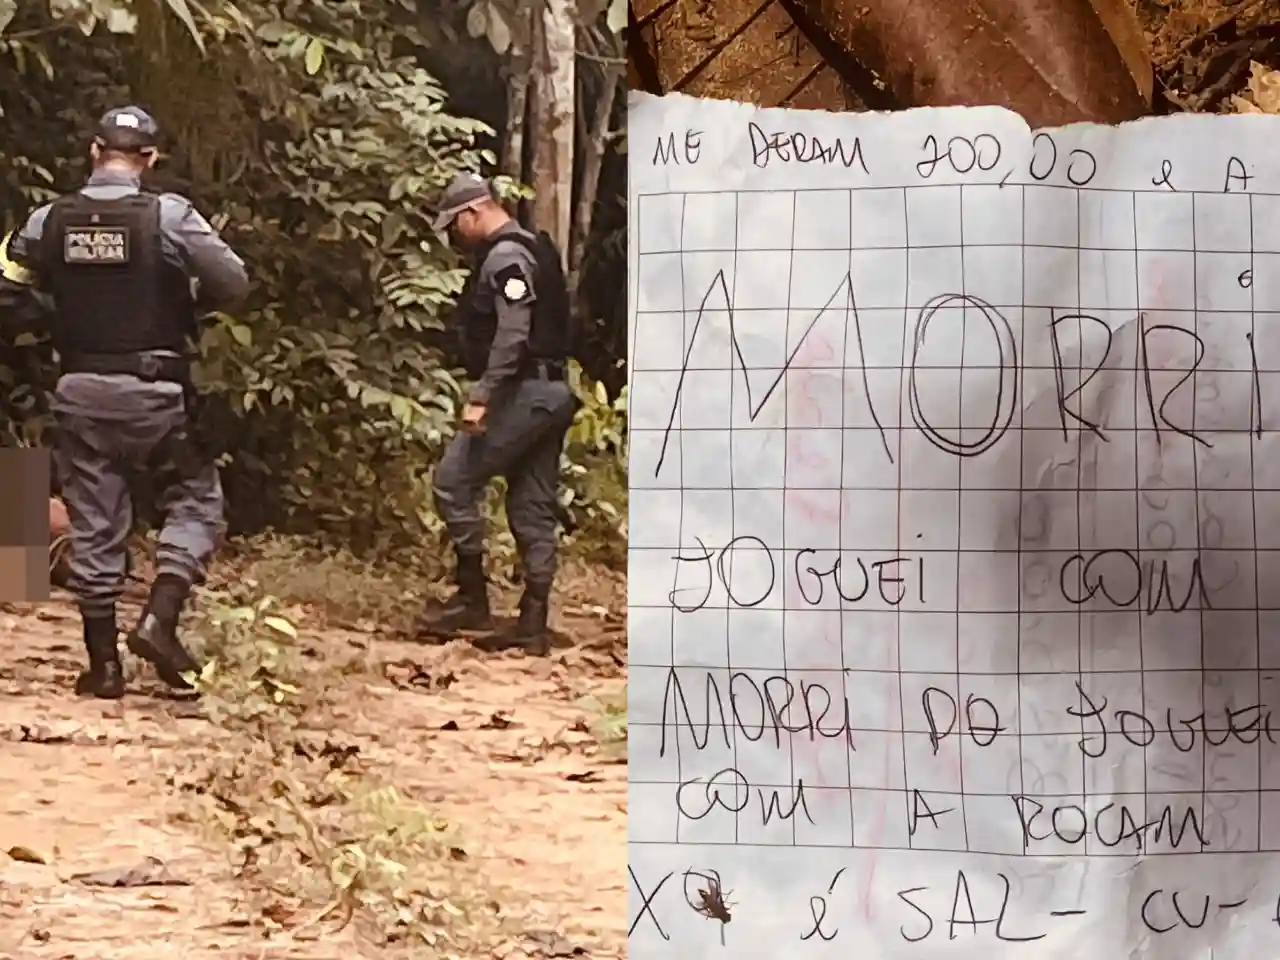 POLÍCIA
MILITAR
ME DERAM 200,00 e A
MORRi
JOGUEi COM
MORRi DO JOGUEi
COM A ROCAM
é SAL- CU-